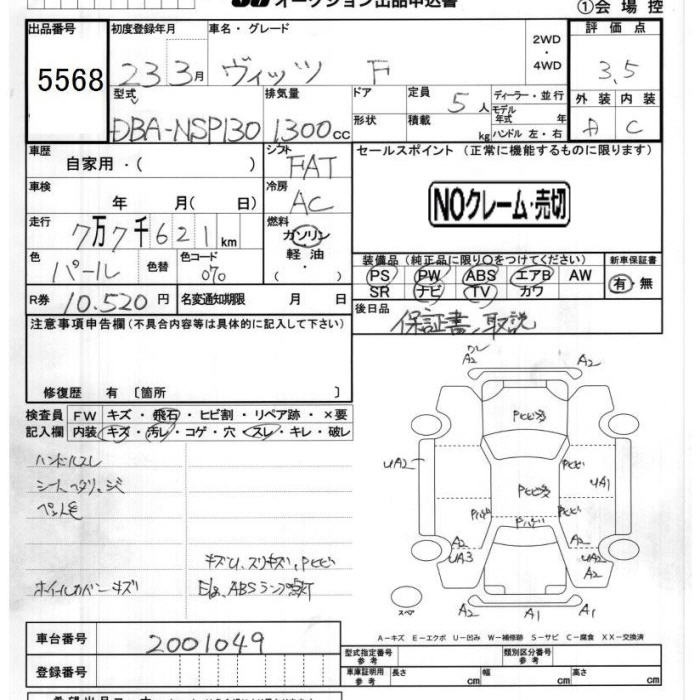 オークション出品申込書
①会場控
出品番号 初度登録年月 車名・グレード 2WD ・ 4WD 評価点
5568 23 3月 ヴィッツ F 3.5
型式 排気量 ドア 定員 5人 ディーラー・並行 外装 内装
モデル年式 年
DBA-NSP130 1300cc 形状 積載 kg ハンドル 左・右 A C
車歴 シフト セールスポイント (正常に機能するものに限ります)
自家用・( ) FAT
車検 冷房
年 月( 日) AC NOクレーム・売切
走行 燃料
7万7千621km ガソリン
色 色替 色コード 軽油・ 装備品 (純正品に限り○をつけてください) 新車保証書
パール 070 ( PS PW ABS エアB AW 有・無
SR ナビ TV カワ
R券 10.520円 名変通知期限 月 日 後日品
注意事項申告欄(不具合内容等は具体的に記入して下さい) 保証書、取説
修復歴 有 〔箇所 〕
検査員 FW キズ・飛石・ヒビ割・リペア跡・×要
記入欄 内装 キズ・汚レ・コゲ・穴・スレ・キレ・破レ
ハンドルスレ
シートヘタリ、シミ
ペット毛
キズU、スリキズ、Pヒビ
ホイールカバーキズ Eg、ABSランプ点灯
A2 A2
Pヒビ
UA2 Pヒビ UA1
A2 A2
UA3 UA2
A2
スペ A2 A1 A1
A-キズ E-エクボ U-凹み W-補修跡 S-サビ C-腐食 XX-交換済
車台番号 2001049 型式指定番号 参考 類別区分番号 参考
登録番号 車庫証明用 参考 長さ cm 幅 cm 高さ cm